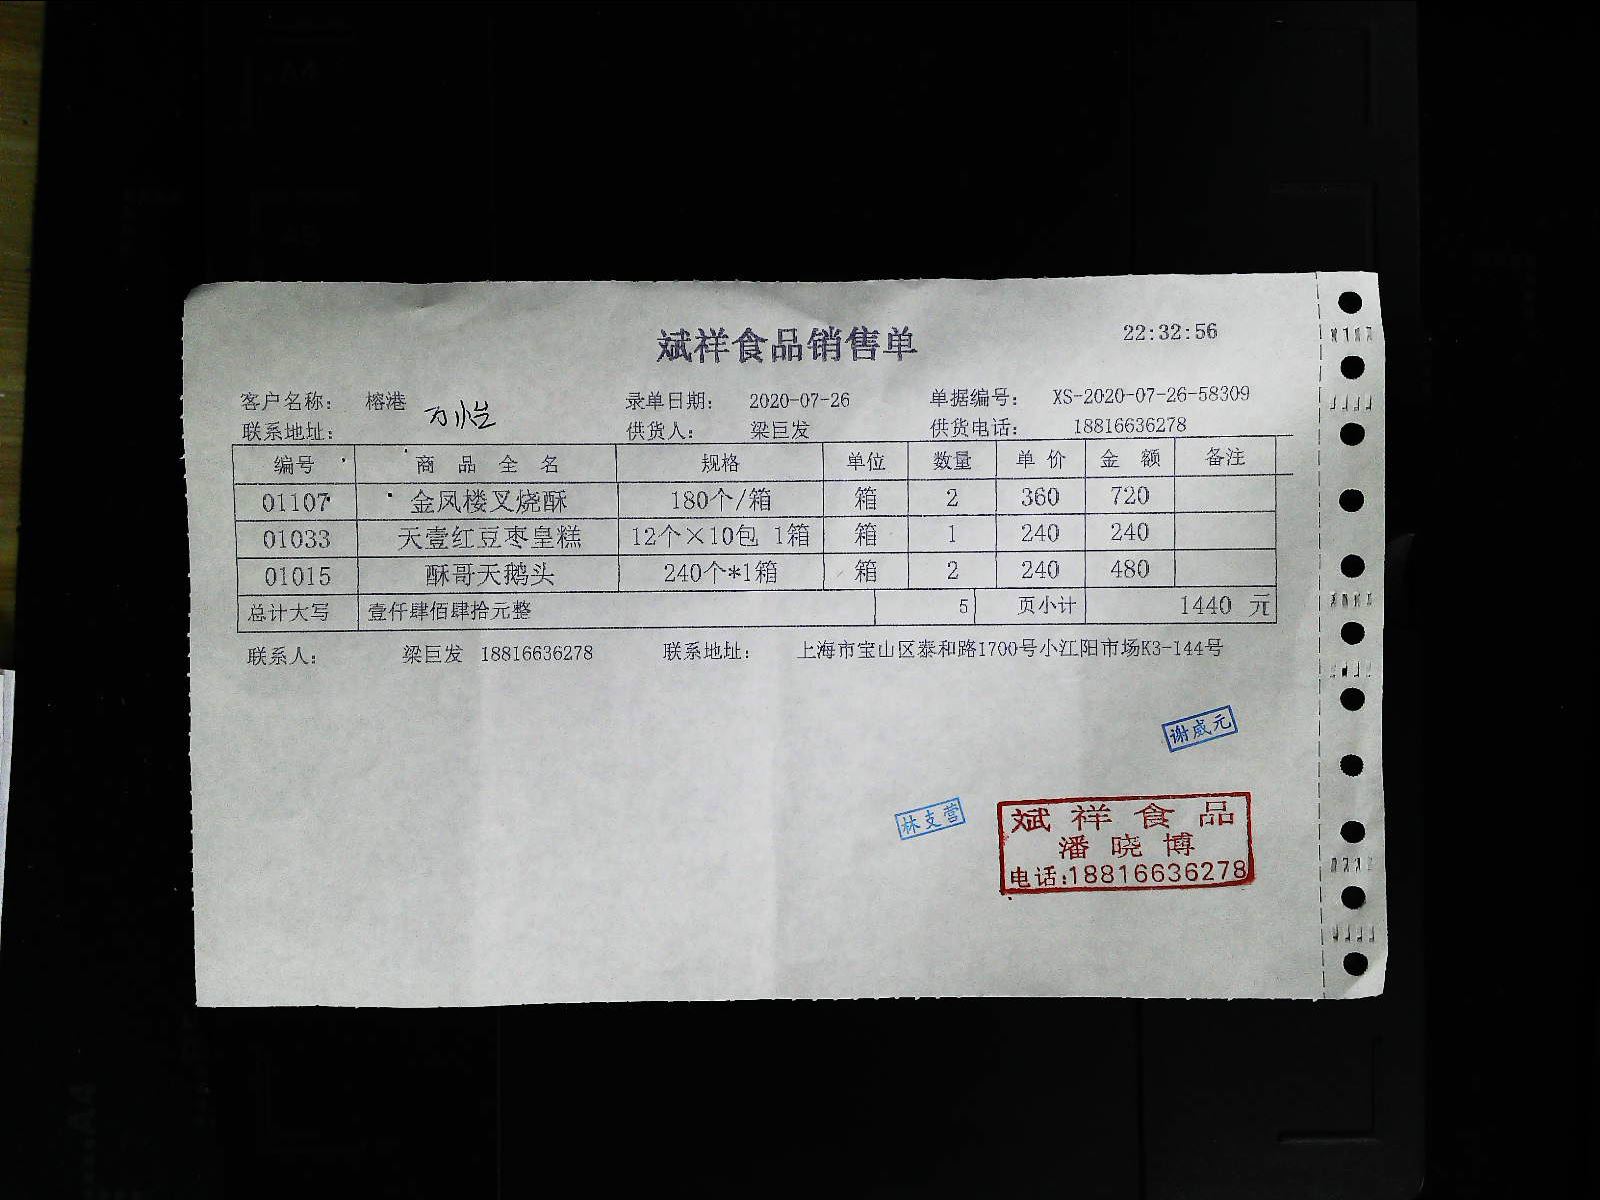 斌祥食品销售单 22:32:56
客户名称: 榕港 万怡 录单日期: 2020-07-26 单据编号: XS-2020-07-26-58309
联系地址: 供货人: 梁巨发 供货电话: 18816636278
编号 商品全名 规格 单位 数量 单价 金额 备注
01107 金凤楼叉烧酥 180个/箱 箱 2 360 720
01033 天壹红豆枣皇糕 12个×10包 1箱 箱 1 240 240
01015 酥哥天鹅头 240个*1箱 箱 2 240 480
总计大写 壹仟肆佰肆拾元整 5 页小计 1440 元
联系人: 梁巨发 18816636278 联系地址: 上海市宝山区泰和路1700号小江阳市场K3-144号
谢威元
林支营
斌祥食品
潘晓博
电话:18816636278